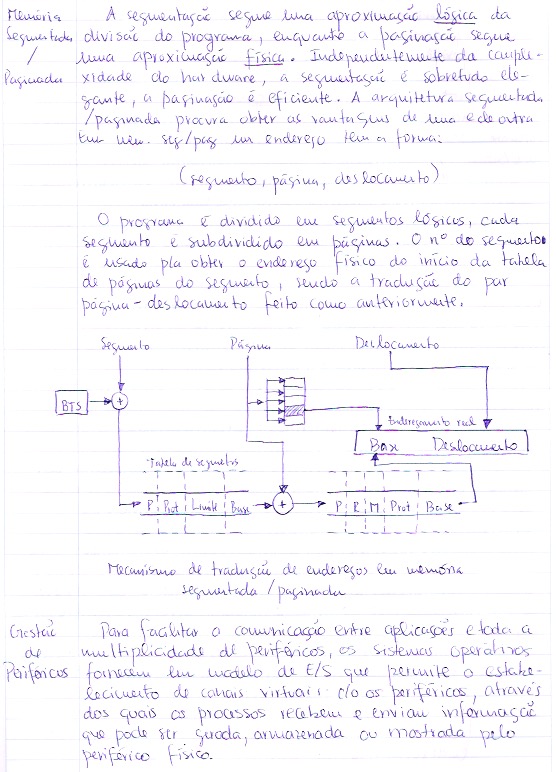 Memória
Segmentada
/
Paginada
A segmentação segue uma aproximação lógica da
divisão do programa, enquanto a paginação segue
uma aproximação física. Independentemente da comple-
xidade do hardware, a segmentação é sobretudo ele-
gante, a paginação é eficiente. A arquitetura segmentada
/paginada procura obter as vantagens de uma e de outra
Em mem. seg/pag um endereço tem a forma:
(segmento, página, deslocamento)
O programa é dividido em segmentos lógicos, cada
segmento é subdividido em páginas. O nº do segmento
é usado p/a obter o endereço físico do início da tabela
de páginas do segmento, sendo a tradução do par
página-deslocamento feito como anteriormente.
Segmento Página Deslocamento
BTS +
Endereçamento real
Base Deslocamento
Tabela de segmentos
P Prot Limite Base + P R M Prot Base
Mecanismo de tradução de endereços em memória
segmentada/paginada
Gestão
de
Periféricos
Para facilitar a comunicação entre aplicações e toda a
multiplicidade de periféricos, os sistemas operativos
fornecem um modelo de E/S que permite o estabe-
lecimento de canais virtuais c/o os periféricos, através
dos quais os processos recebem e enviam informação
que pode ser gerada, armazenada ou mostrada pelo
periférico físico.